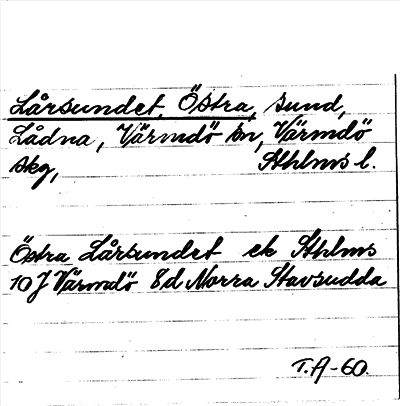 Lårsundet, Östra, sund,
Lådna, Värmdö sn, Värmdö
skg, Sthlms l.
Östra Lårsundet ek Sthlms
10 J Värmdö 8d Norra Stavsudda
T.A-60.